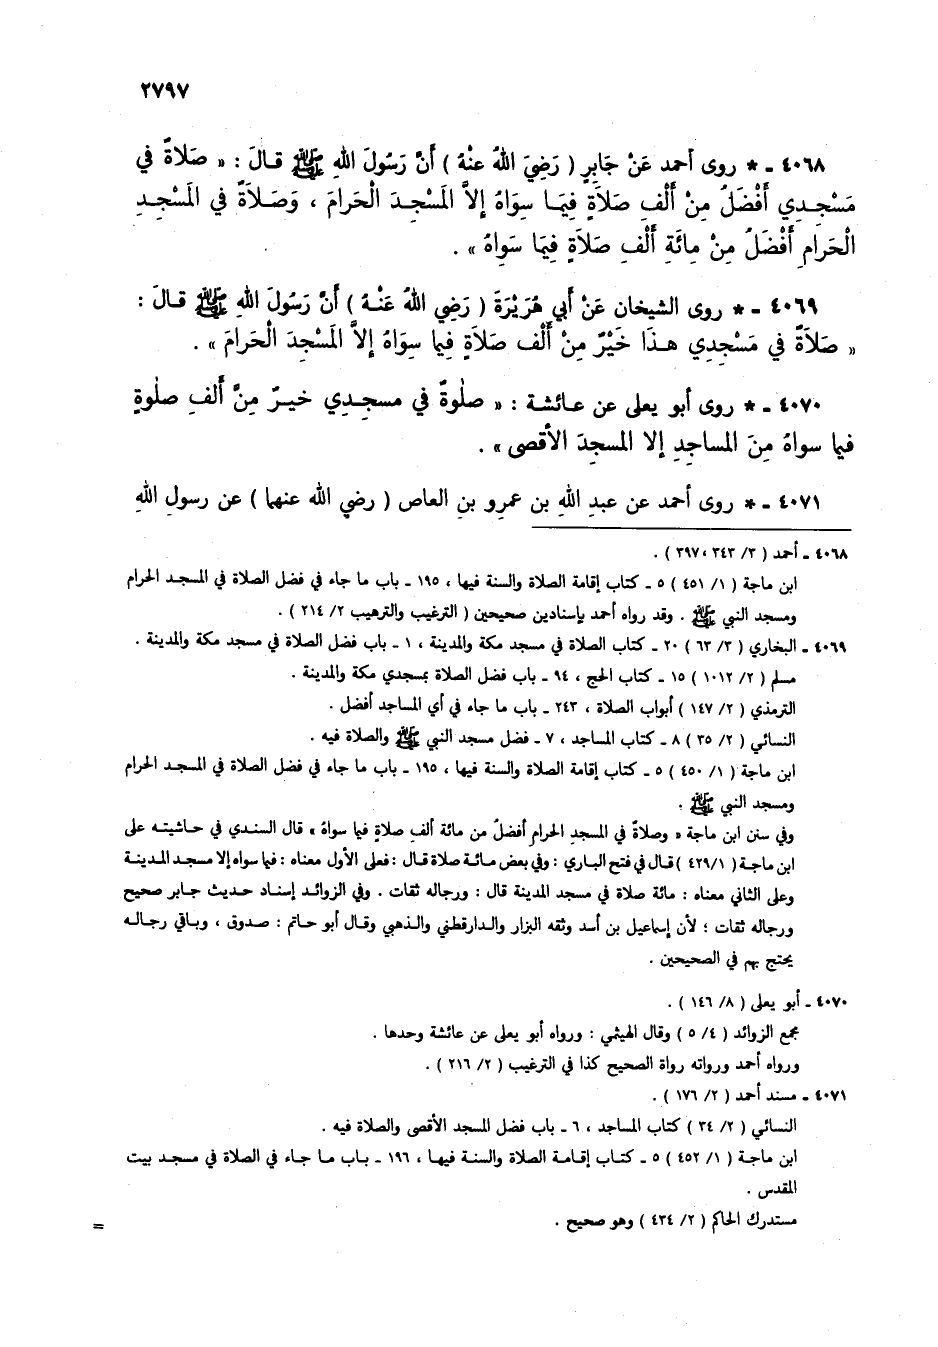 ٢٧٩٧
٤٠٦٨ ـ * روى أحمد عَنْ جَابِرٍ ( رَضِيَ اللهُ عنْهُ ) أَنَّ رَسُولَ اللهِ ﷺ قالَ : « صَلاةٌ في
مَسْجِدِي أَفْضَلُ مِنْ أَلْفِ صَلاةٍ فِيمَا سِوَاهُ إلاَّ المَسْجِدَ الْحَرامَ ، وَصَلاَةٌ في المَسْجِدِ
الْحَرامِ أَفْضَلُ مِنْ مِائَةِ أَلْفِ صَلاَةٍ فِيمَا سَواهُ » .
٤٠٦٩ ـ * روى الشيخان عَنْ أبي هُرَيْرَةَ ( رَضِي اللهُ عَنْهُ ) أَنَّ رَسُولَ اللهِ ﷺ قالَ :
« صَلاَةٌ في مَسْجِدِي هـذَا خَيْرٌ مِنْ أَلْفِ صَلاَةٍ فيما سِوَاهُ إلاَّ المَسْجِدَ الْحَرامَ » .
٤٠٧٠ ـ * روى أبو يعلى عن عائشة : « صلٰوةٌ في مسجدِي خيرٌ مِنَّ أَلفِ صلٰوةٍ
فيما سواهُ مِنَ المساجِدِ إلا المسجدَ الأقصى » .
٤٠٧١ ـ * روى أحمد عن عبدِ اللهِ بن عمرِو بنِ العاص ( رضي الله عنهما ) عن رسولِ اللهِ
٤٠٦٨ ـ أحمد ( ٣/ ٣٤٣ ، ٣٩٧ ) .
ابن ماجة ( ١/ ٤٥١ ) ٥ ـ كتاب إقامة الصلاة والسنة فيها ، ١٩٥ ـ باب ما جاء في فضل الصلاة في المسجد الحرام
ومسجد النبي ﷺ . وقد رواه أحمد بإسنادين صحيحين ( الترغيب والترهيب ٢/ ٢١٤ ) .
٤٠٦٩ ـ البخاري ( ٣/ ٦٣ ) ٢٠ ـ كتاب الصلاة في مسجد مكة والمدينة ، ١ ـ باب فضل الصلاة في مسجد مكة والمدينة .
مسلم ( ٢/ ١٠١٢ ) ١٥ ـ كتاب الحج ، ٩٤ ـ باب فضل الصلاة بمسجدي مكة والمدينة .
الترمذي ( ٢/ ١٤٧ ) أبواب الصلاة ، ٢٤٣ ـ باب ما جاء في أي المساجد أفضل .
النسائي ( ٢/ ٣٥ ) ٨ ـ كتاب المساجد ، ٧ ـ فضل مسجد النبي ﷺ والصلاة فيه .
ابن ماجة ( ١/ ٤٥٠ ) ٥ ـ كتاب إقامة الصلاة والسنة فيها ، ١٩٥ ـ باب ما جاء في فضل الصلاة في المسجد الحرام
ومسجد النبي ﷺ .
وفي سنن ابن ماجة « وصلاةٌ في المسجدِ الحرامِ أفضلُ من مائة ألفِ صلاةٍ فيما سواهُ » قال السندي في حاشيته على
ابن ماجة ( ٤٢٩/١ ) قال في فتح الباري : وفي بعض مائة صلاة قال : فعلى الأول معناه : فيما سواه إلا مسجد المدينة
وعلى الثاني معناه : مائة صلاة في مسجد المدينة قال : ورجاله ثقات . وفي الزوائد إسناد حديث جابر صحيح
ورجاله ثقات ؛ لأن إسماعيل بن أسد وثقه البزار والدارقطني والذهبي وقال أبو حاتم : صدوق ، وباقي رجاله
يحتج بهم في الصحيحين .
٤٠٧٠ ـ أبو يعلى ( ٨/ ١٤٦ ) .
مجمع الزوائد ( ٤/ ٥ ) وقال الهيثمي : ورواه أبو يعلى عن عائشة وحدها .
ورواه أحمد ورواته رواة الصحيح كذا في الترغيب ( ٢/ ٢١٦ ) .
٤٠٧١ ـ مسند أحمد ( ٢/ ١٧٦ ) .
النسائي ( ٢/ ٣٤ ) كتاب المساجد ، ٦ ـ باب فضل المسجد الأقصى والصلاة فيه .
ابن ماجة ( ١/ ٤٥٢ ) ٥ ـ كتاب إقامة الصلاة والسنة فيها ، ١٩٦ ـ باب ما جاء في الصلاة في مسجد بيت
المقدس .
مستدرك الحاكم ( ٢/ ٤٣٤ ) وهو صحيح .
=